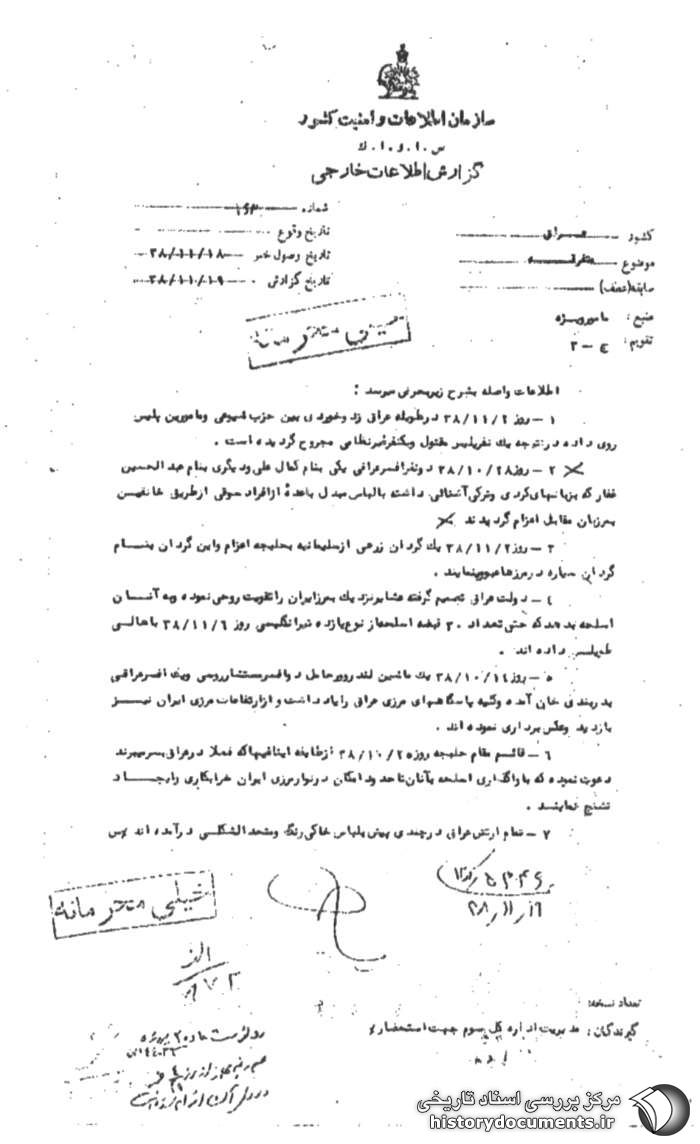 سازمان اطلاعات و امنیت کشور
س . ا . و . ا . ك
گزارش اطلاعات خارجی
شماره ۱۶۳
تاریخ وقوع
تاریخ وصول خبر ۳۸/۱۱/۱۸
تاریخ گزارش ۳۸/۱۱/۱۹
کشور عراق
موضوع متفرقه
سابقه (عطف)
منبع : مامور ویژه
تقویم : ج – ۲
خیلی محرمانه
اطلاعات واصله بشرح زیر بعرض میرسد :
۱ – روز ۳۸/۱۱/۲ در طویله عراق زد و خوردی بین حزب شیوعی و مامورین پلیس
روی داده در نتیجه یك نفر پلیس مقتول و یکنفر غیر نظامی مجروح گردیده است .
۲ – روز ۳۸/۱۰/۲۸ دو نفر افسر عراقی یکی بنام کمال علی و دیگری بنام عبد الحسین
غفار که بزبانهای کردی و ترکی آشنائی داشته با لباس مبدل با عدهٔ از افراد سوقی از طریق خانقین
بمرزبان مقابل اعزام گردیدند
۳ – روز ۳۸/۱۱/۲ یك گردان زرهی از سلیمانیه بحلبچه اعزام و این گردان بنام
گردان سیاره در مرزها عبور مینمایند .
٤ – دولت عراق تصمیم گرفته عشایر نزدیك بمرز ایران را تقویت روحی نموده و به آنان
اسلحه بدهد که حتی تعداد ۲۰ قبضه اسلحه از نوع یازده تیر انگلیسی روز ۳۸/۱۱/٦ باهالی
طویله داده اند .
٥ – روز ۳۸/۱۰/۱٤ یك ماشین لندرور حامل دو افسر مستشار روسی و یك افسر عراقی
بدربندی خان آمده و کلیه پاسگاههای مرزی عراق را یادداشت و از ارتفاعات مرزی ایران نیز
بازدید و عکس برداری نموده اند .
٦ – قائم مقام حلبچه روز ۳۸/۱۰/۲٥ از طایفه ایناقیها که فعلا در عراق بسر میبرند
دعوت نموده که با واگذاری اسلحه بآنان تا حدود امکان در نوار مرزی ایران خرابکاری و ایجاد
تشنج نمایند .
۷ – تمام ارتش عراق در چندی پیش بلباس خاکی رنگ و متحد الشکلی در آمده اند پس
خیلی محرمانه
۳۸/۱۱/۱۹
الف
تعداد نسخه :
گیرندگان : مدیریت اداره کل سوم جهت استحضار
مرکز بررسی اسناد تاریخی
historydocuments.ir